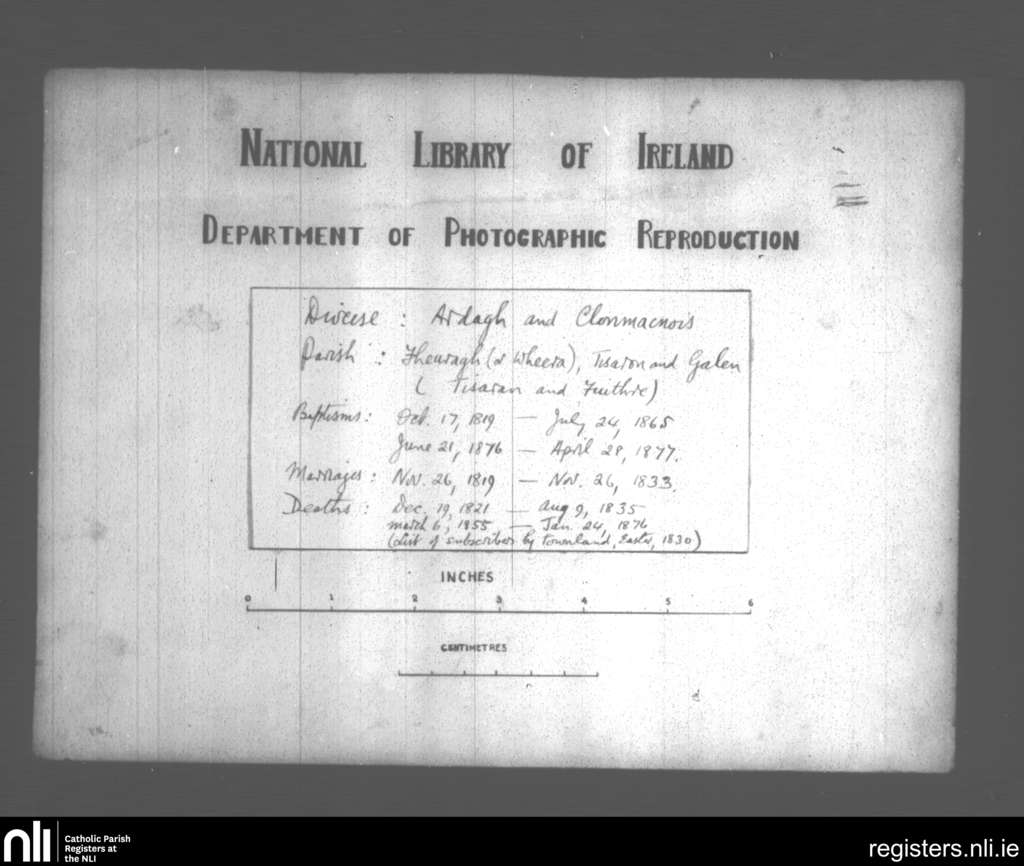 NATIONAL LIBRARY OF IRELAND
DEPARTMENT OF PHOTOGRAPHIC REPRODUCTION
Diocese : Ardagh and Clonmacnois
Parish : Fheuragh (or Wheera), Tisaron and Galen
( Tisaran and Fuithre)
Baptisms : Oct. 17, 1819 — July 24, 1865
June 21, 1876 — April 28, 1877.
Marriages : Nov. 26, 1819 — Nov. 26, 1833.
Deaths : Dec. 19, 1821 — Aug 9, 1835
March 6, 1855 — Jan. 24, 1876
(List of subscribers by townland, Easter, 1830)
INCHES
0 1 2 3 4 5 6
CENTIMETRES
nli Catholic Parish
Registers at
the NLI
registers.nli.ie